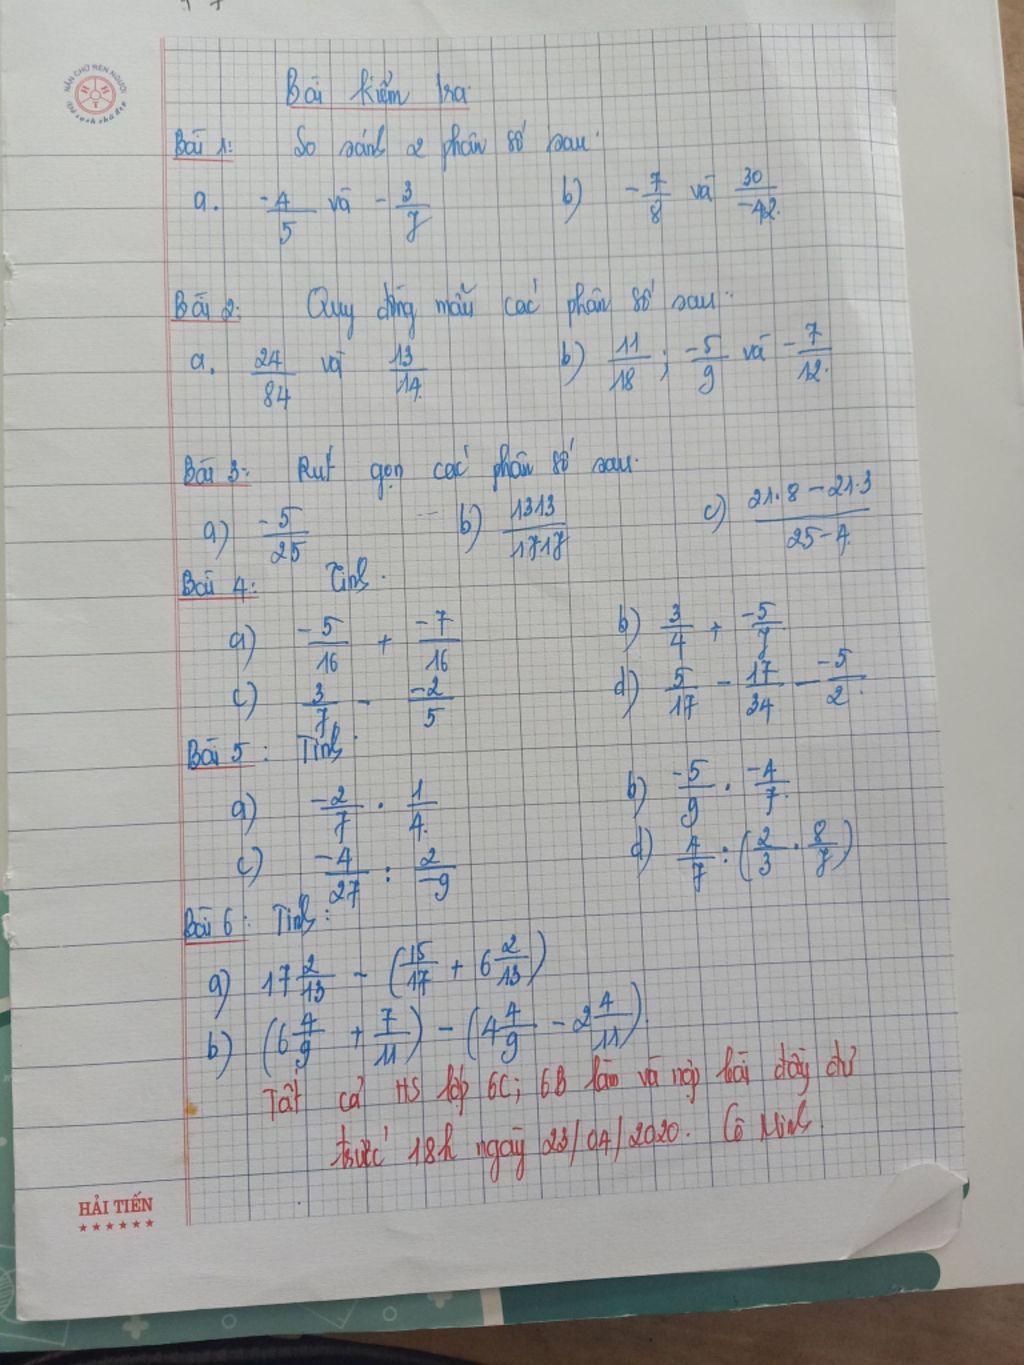 Bài kiểm tra
Bài 1: So sánh 2 phân số sau:
a. -4/5 và -3/7 b) -7/8 và 30/-42.
Bài 2: Quy đồng mẫu các phân số sau:
a. 24/84 và 13/14. b) 11/18; -5/9 và -7/12.
Bài 3: Rút gọn các phân số sau.
a) -5/25 b) 1313/1717 c) 21.8-21.3/25-4.
Bài 4: Tính.
a) -5/16 + -7/16 b) 3/4 + -5/7
c) 3/7 - -2/5 d) 5/17 - 17/34 - -5/2.
Bài 5: Tính
a) -2/7 . 1/4. b) -5/9 . -4/7.
c) -4/27 : 2/-9 d) 4/7 : (2/3 . 8/7)
Bài 6: Tính:
a) 17 2/13 - (15/17 + 6 2/13)
b) (6 4/9 + 7/11) - (4 4/9 - 2 4/11).
Tất cả HS lớp 6C; 6B làm và nộp bài đầy đủ
trước 18h ngày 23/04/2020. Cô Minh
HẢI TIẾN